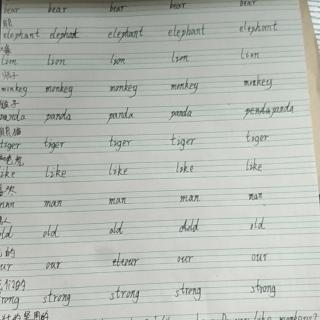 bear bear bear bear bear
熊
elephant elephant elephant elephant elephant
lion lion lion lion lion
狮子
monkey monkey monkey monkey monkey
猴子
panda panda panda panda panda
熊猫
tiger tiger tiger tiger tiger
老虎
like like like like like
喜欢
man man man man man
人
old old old old old
的
our our our our our
我们的
strong strong strong strong strong